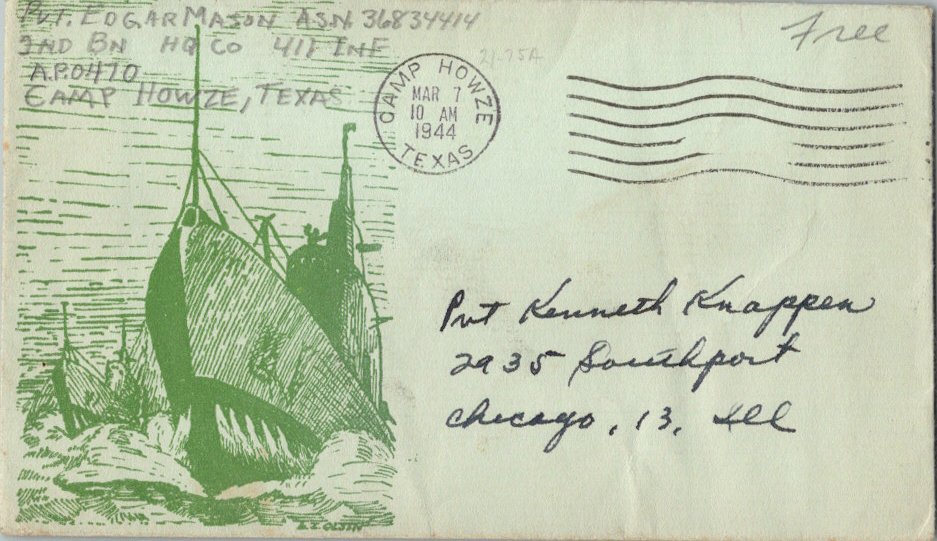 Pvt. Edgar Mason ASN 36834414
2nd Bn Hq Co 411 Inf
A.P.O 470
Camp Howze, Texas
21-75A
Free
CAMP HOWZE
MAR 7
10 AM
1944
TEXAS
Pvt Kenneth Knappen
2935 Southport
Chicago, 13, Ill